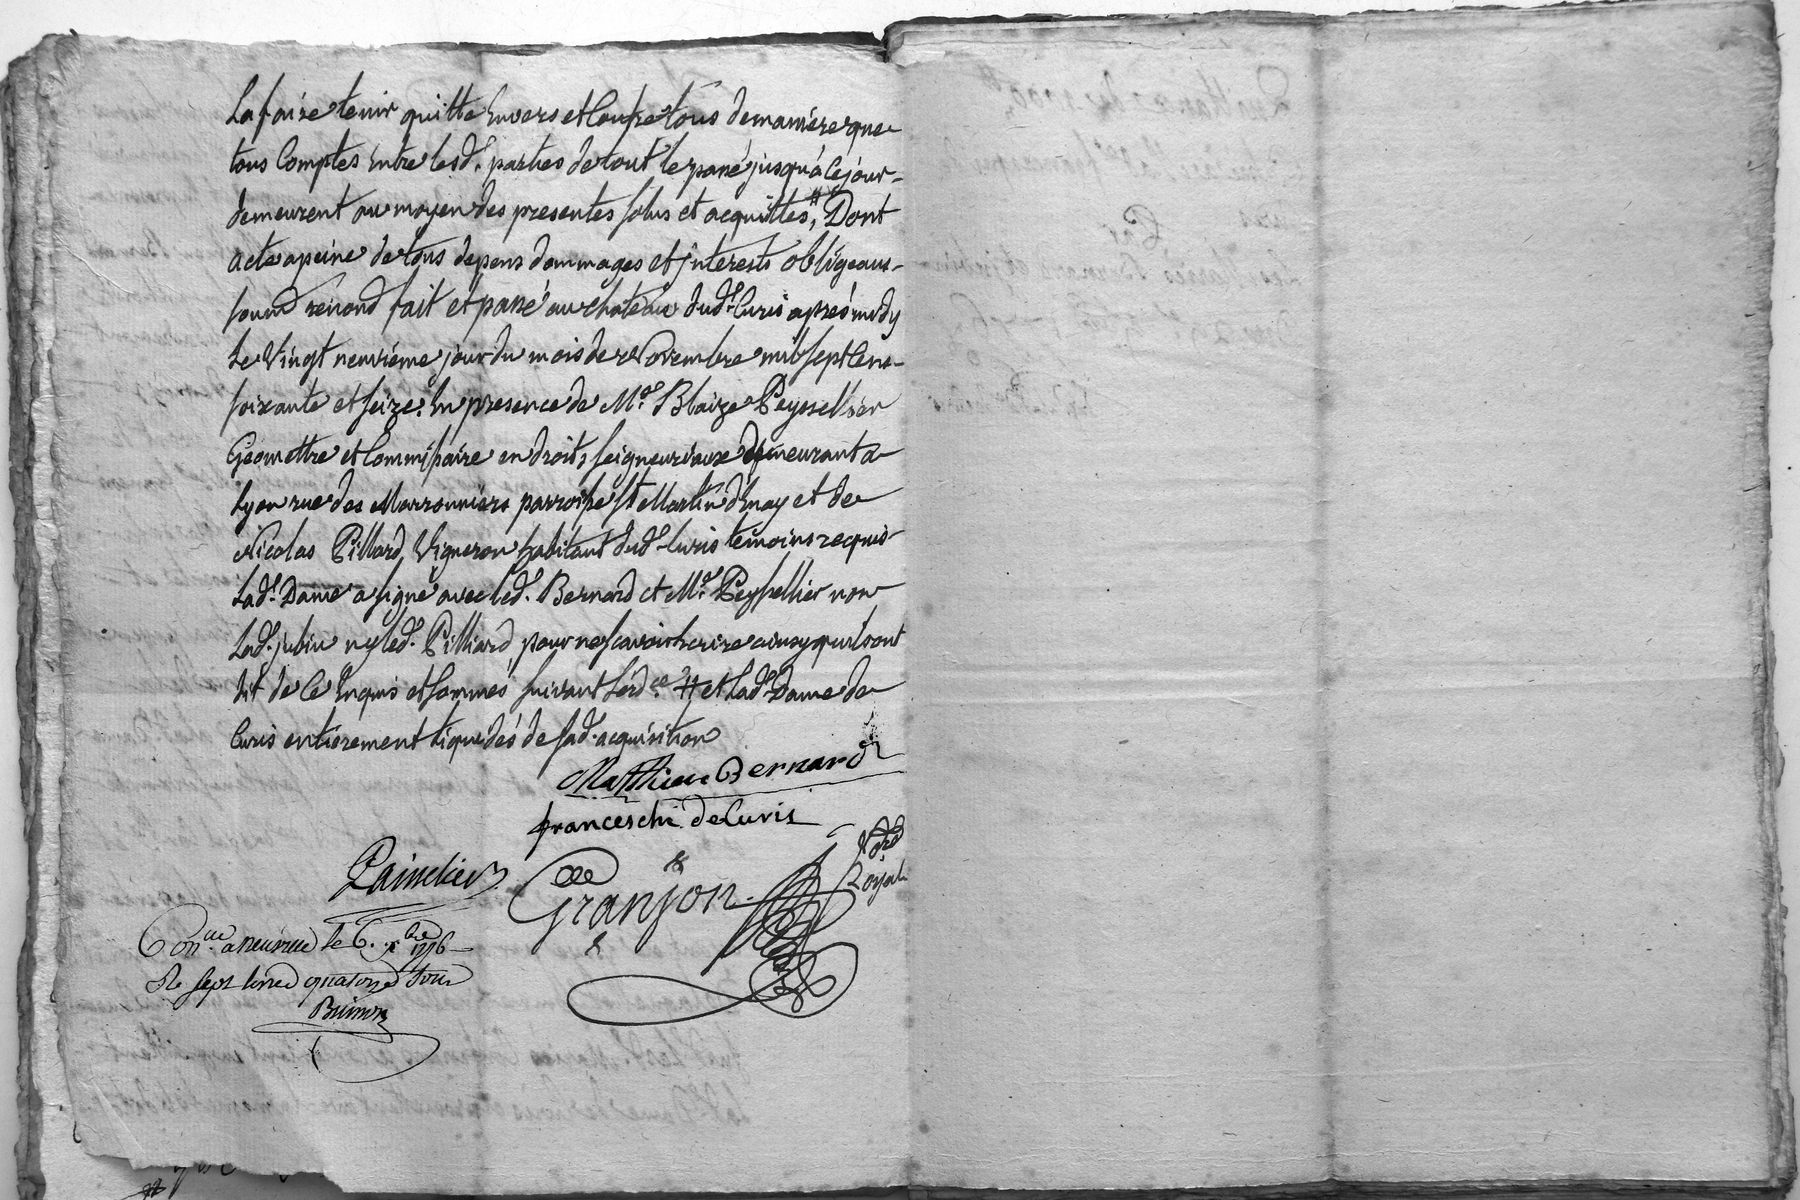 La faire tenir quitte Envers et Contre tous de maniere que
tous Comptes Entre lesd. parties de tout le passé jusqu'a Ce jour
demeurent au moyen des presentes solus et acquittés # Dont
acte a peine de tous depens dommages et jnterests obligeans
soum renond fait et passé au chateau dud. Curis aprés midy
Le Vingt neuvième jour du mois de Novembre mil sept Cent
soixante et seize. En presence de Me. Blaize Peyssellier
Géomettre et Commissaire en droits seigneuriaux demeurant a
Lyon rue des Marronniers parroisse st Martin d'Enay et de
Nicolas Pilliard Vigneron habitant dud. Curis témoins requis
Lad. Dame a signé avec led. Bernard et Me. Peyssellier non
Lad. jubin ny led. Pilliard, pour ne scavoir Ecrire ainsy quils ont
dit de Ce Enquis et sommés suivant Lord.ce # et Lad. Dame de
Curis entierement liquidés de sad. acquisition
Matthieu Bernard
franceschi de Curis
Granjon
Nore
Royal
Con.lle a neuville le 6. xbre 1776
R. sept livres quatorze sous